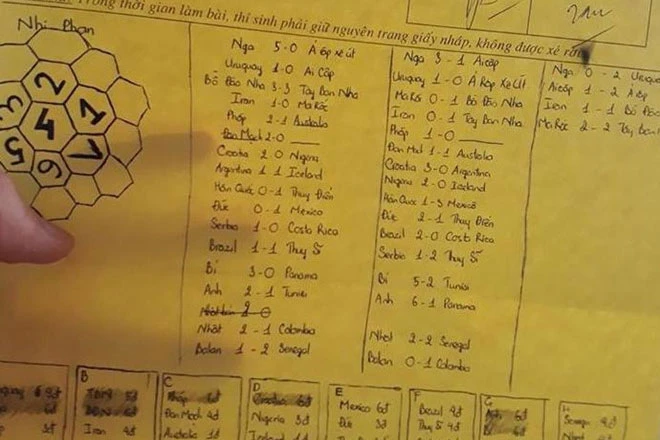 Trong thời gian làm bài, thí sinh phải giữ nguyên trang giấy nháp, không được xé rời
Nhị Phân
2
3
1
4
5
7
6
Nga 5-0 Ả Rập xê út
Uruguay 1-0 Ai Cập
Bồ Đào Nha 3-3 Tây Ban Nha
Iran 1-0 Ma Rốc
Pháp 2-1 Australa
Đan Mạch 2-0
Croatia 2 0 Nigeria
Argentina 1 1 Iceland
Hàn Quốc 0-1 Thuỵ Điển
Đức 0-1 Mexico
Serbia 1-0 Costa Rica
Brazil 1-1 Thuỵ Sĩ
Bỉ 3-0 Panama
Anh 2-1 Tunisi
Nhật bản 2 0
Nhật 2-1 Colombia
Balan 1-2 Senegal
Nga 3-1 Ai cập
Uruguay 1-0 Ả Rập Xê Út
Ma Rốc 0-1 Bồ Đào Nha
Iran 0-1 Tây Ban Nha
Pháp 1-0
Đan Mạch 1-1 Australa
Croatia 3-0 Argentina
Nigeria 2-0 Iceland
Hàn Quốc 1-3 Mexicô
Đức 2-1 Thuỵ Điển
Brazil 2-0 Costa Rica
Serbia 1-2 Thuỵ Sĩ
Bỉ 5-2 Tunisi
Anh 6-1 Panama
Nhật 2-2 Senegal
Balan 0-1 Colombia
Nga 0-2 Urugua
Ai cập 1-2 Ả Rập
Iran 1-1 Bồ Đào
Ma Rốc 2-2 Tây Ban
B
TBN 5đ
BĐN 5đ
Iran 4đ
C
Pháp
Đan Mạch 4đ
Australa 1đ
D
Croatia 6đ
Nigeria 3đ
E
Mexico 6đ
Đức 3đ
F
Brazil 4đ
Thuỵ Sĩ 4đ
G
Anh 6đ
Bỉ 6đ
H
Senega 4đ